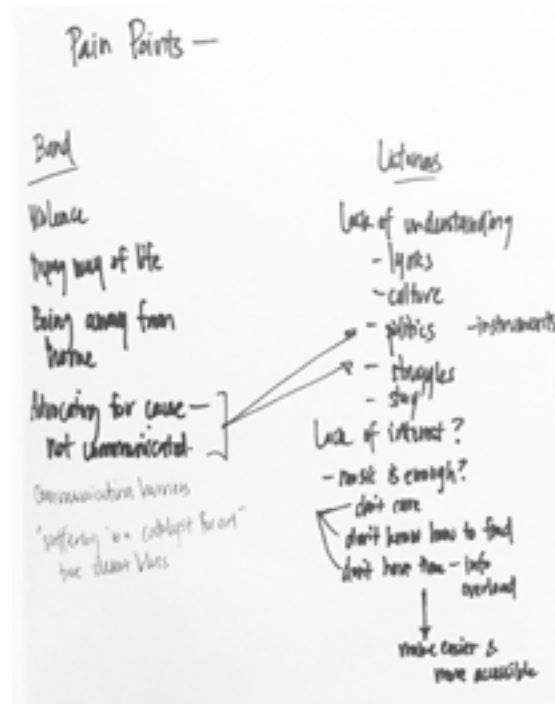 Pain Points —
Band
Violence
Dying way of life
Being away from
home
Advocating for cause —
not communicated
Communication barriers
"suffering is a catalyst for art"
true desert blues
Listeners
Lack of understanding
- lyrics
- culture
- politics - instruments
- struggles
- story
Lack of interest?
- music is enough?
don't care
don't know how to find
don't have time - info
overload
make easier &
more accessible